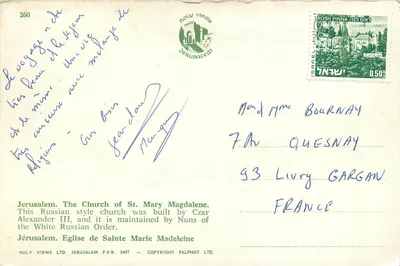 260
HOLY VIEWS
JERUSALEM
ROSH PINNA
ISRAEL
ישראל
0.50
Le voyage a été
très beau et le séjour
et de même. Une ville
très curieuse avec mélange de
religions. Gros Bises
Mr and Mme BOURNAY
7 Av QUESNAY
93 Livry GARGAN
FRANCE
Jerusalem. The Church of St. Mary Magdalene.
This Russian style church was built by Czar
Alexander III, and it is maintained by Nuns of
the White Russian Order.
Jérusalem. Eglise de Sainte Marie Madeleine
HOLY VIEWS LTD. JERUSALEM P.O.B. 2497 — COPYRIGHT PALPHOT LTD.